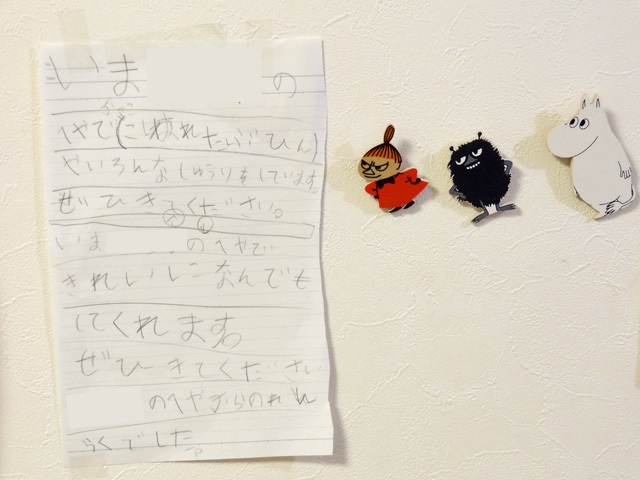 いま の
へやで(こわれたぶひん)
やいろんなしゅうりをしています。
ぜひきてください。
いま のへやで
きれいになんでも
してくれます。
ぜひきてください
のへやからのれん
らくでした。